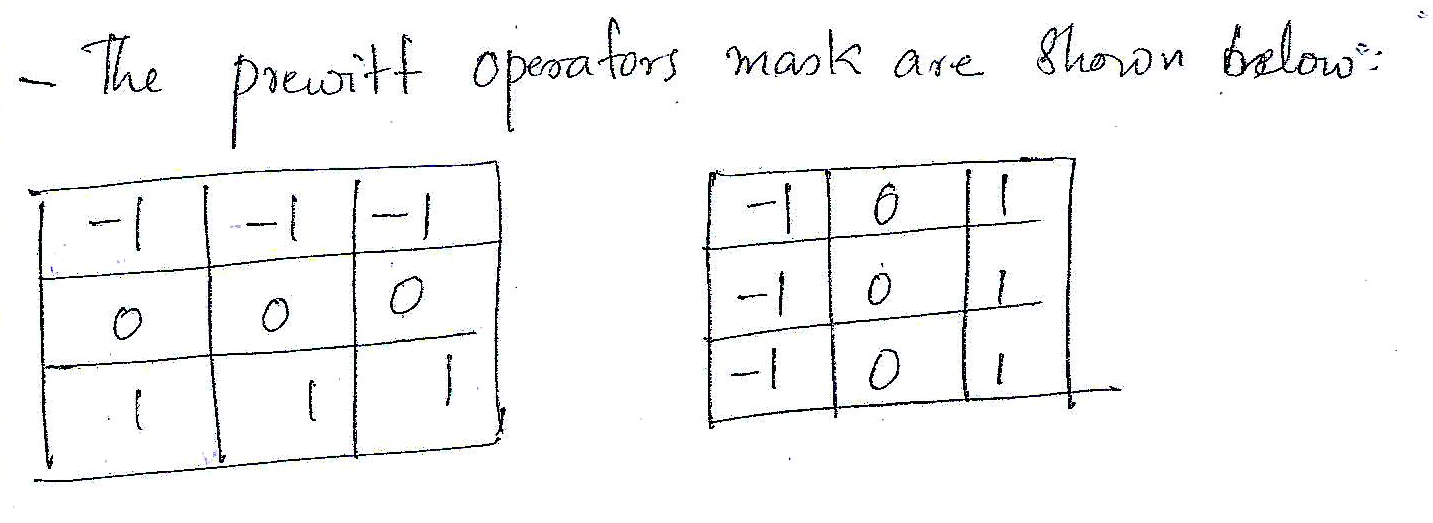 - The prewitt operators mask are shown below:
-1 -1 -1 -1 0 1
0 0 0 -1 0 1
1 1 1 -1 0 1